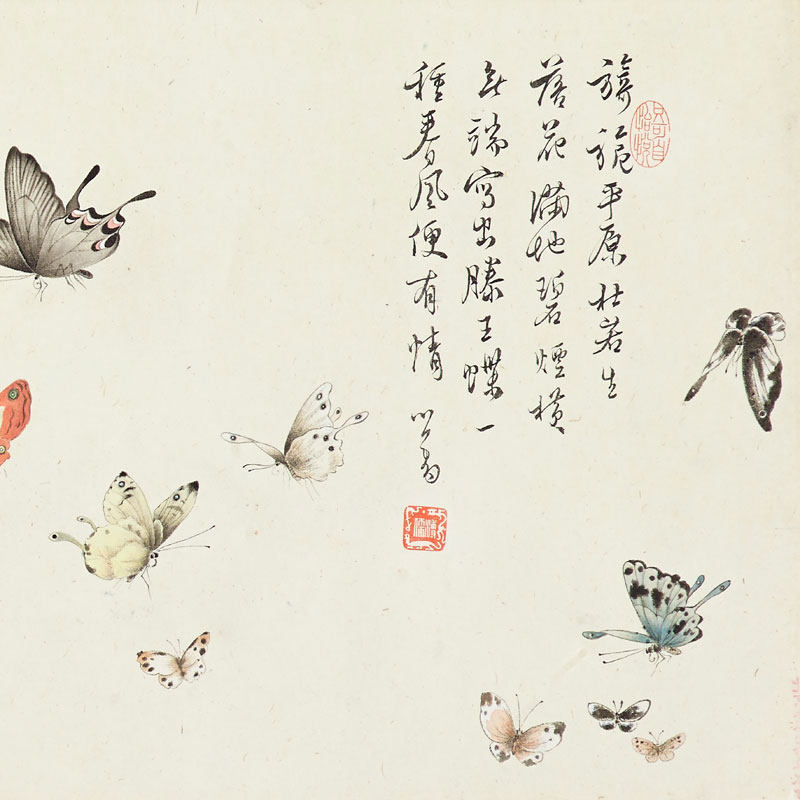 旖旎平原杜若生
落花滿地碧煙橫
無端寫出滕王蝶一
種春風便有情 心畬
溥儒